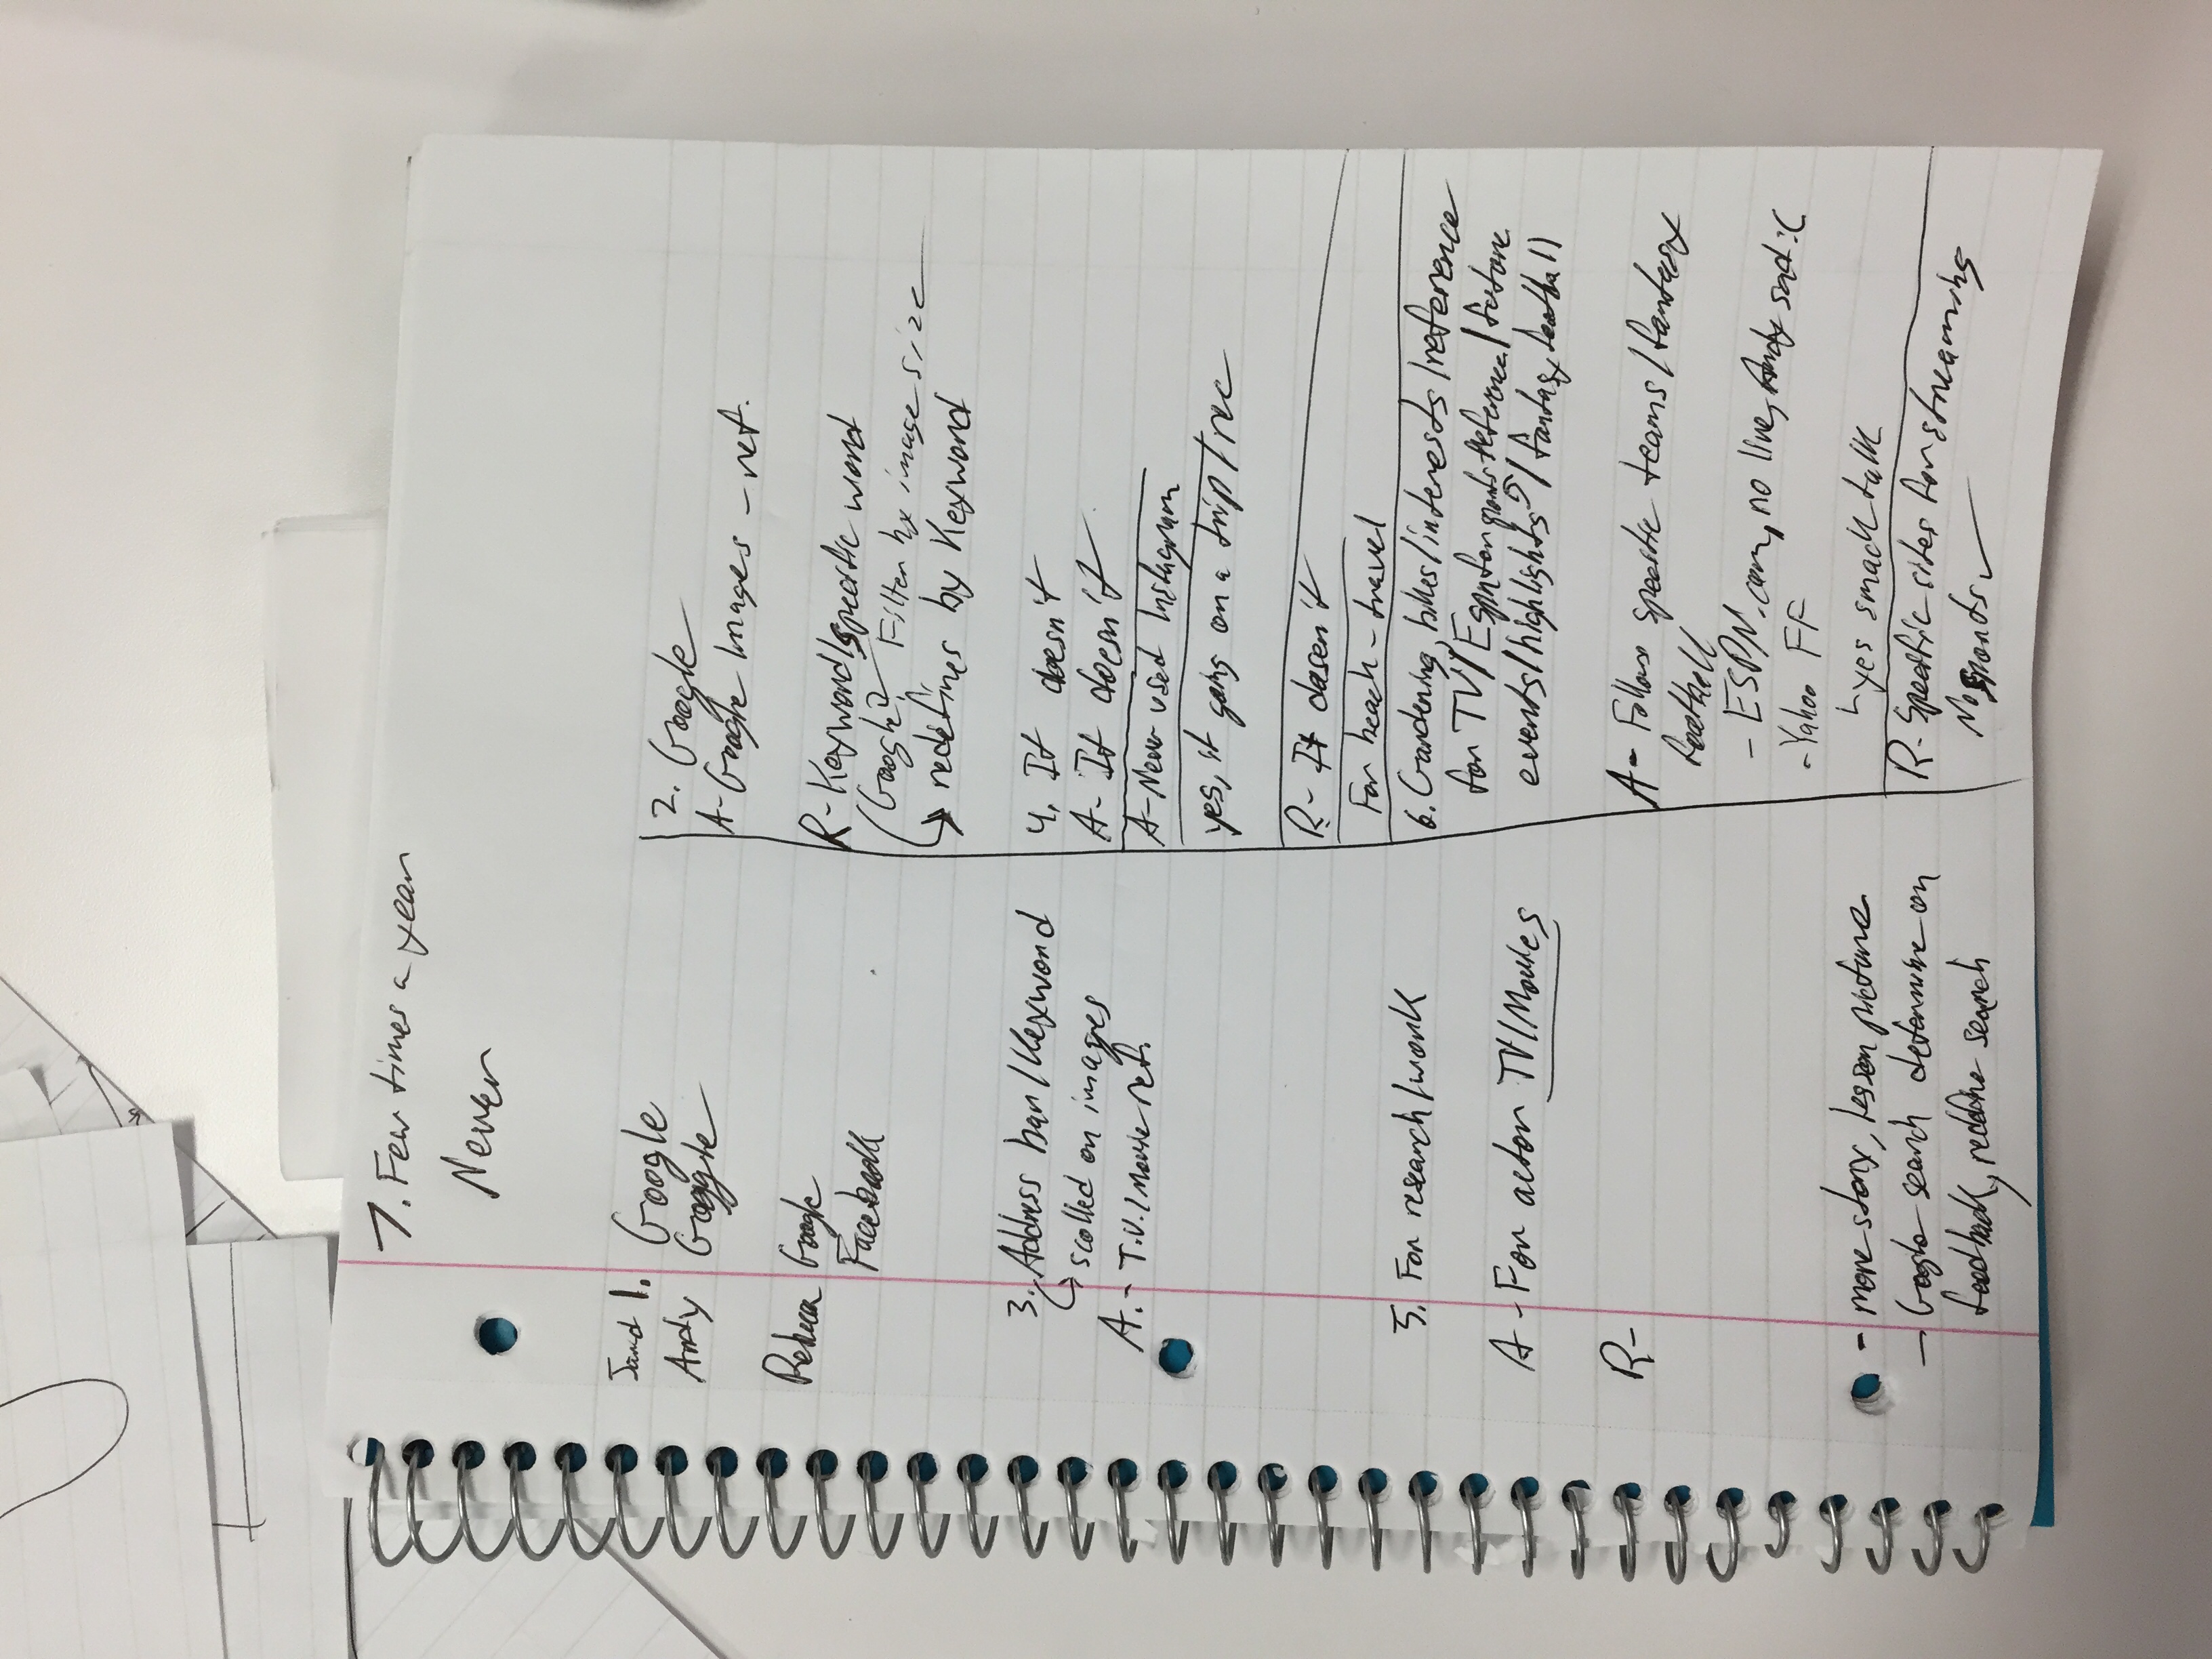 7. Few times a year
Never
1. Google
Andy Google
Rebecca Google
Facebook
3. Address bar/Keyword
↳ scolled on images
A.- T.V./movie ref.
5. For research/work
A - For action TV/Movies
R-
- more story, lesson picture
- Google search determine on
feedback, redefine search
2. Google
A- Google Images - ref.
R- Keyword/specific word
(Google?) Filter by image size
↳ redefines by Keyword
4. It doesn't
A- It doesn't
A- Never used Instagram
yes, if going on a trip/rec
R- It dosen't
For beach - travel
6. Gardening, bikes/interests/reference
for TV/
events/highlights?/fantasy football
A- Follow specific teams/fantasy
football
- ESPN.com, no live,
- Yahoo FF
↳ yes smack talk
R- Specific sites for streaming
No sports